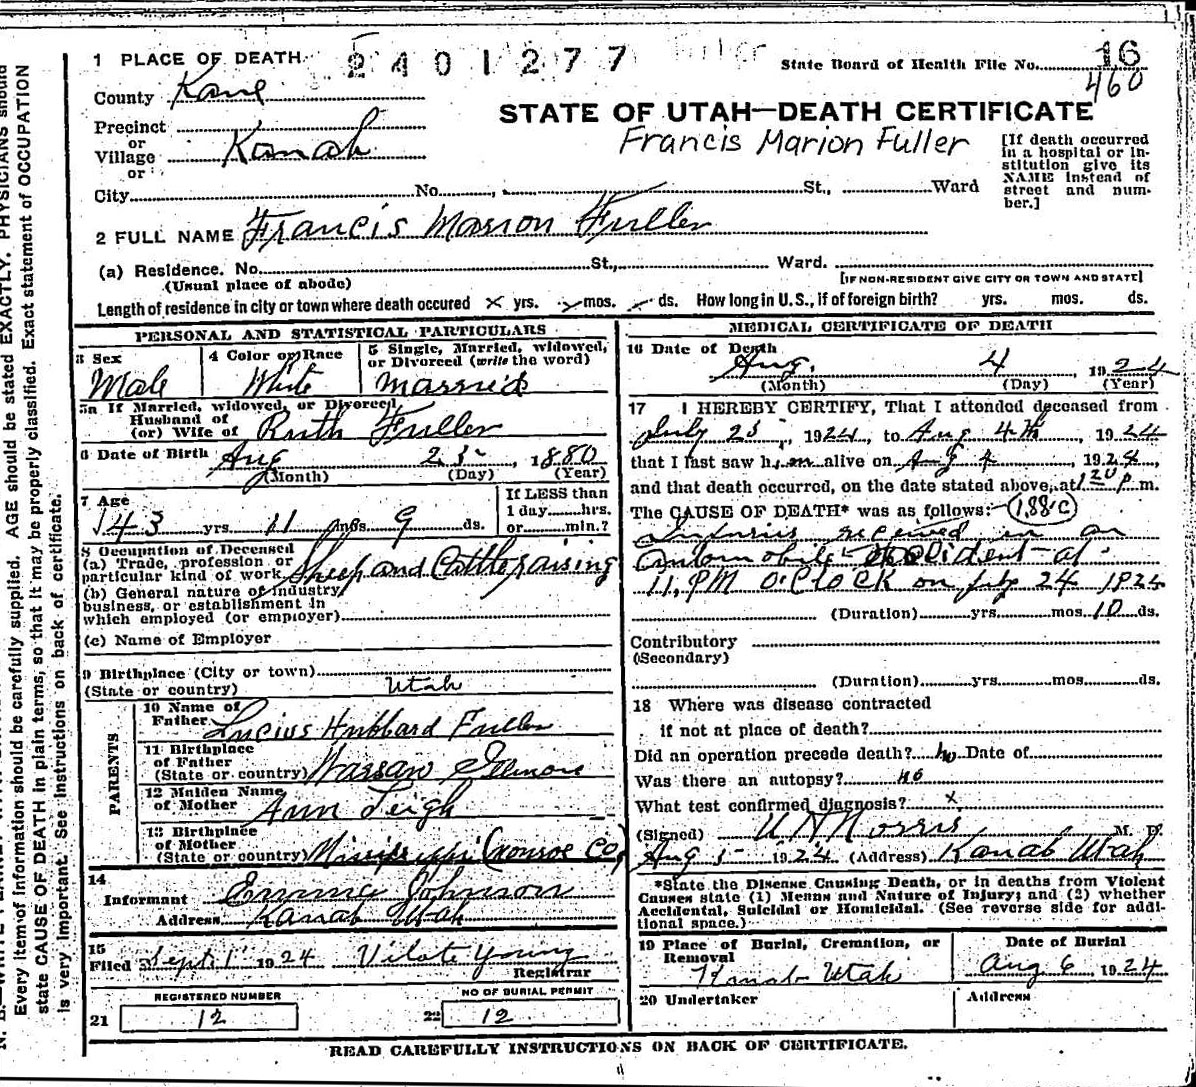 1 PLACE OF DEATH
2401277
Fuller
State Board of Health File No. 16
460
County Kane
STATE OF UTAH—DEATH CERTIFICATE
Precinct
or
Village Kanab
or
Francis Marion Fuller
[If death occurred in a hospital or institution give its NAME instead of street and number.]
City No. St., Ward
2 FULL NAME Francis Marion Fuller
(a) Residence. No. St., Ward.
(Usual place of abode)
[IF NON-RESIDENT GIVE CITY OR TOWN AND STATE]
Length of residence in city or town where death occured x yrs. mos. ds. How long in U.S., if of foreign birth? yrs. mos. ds.
PERSONAL AND STATISTICAL PARTICULARS
3 Sex
Male
4 Color or Race
White
5 Single, Married, widowed, or Divorced (write the word)
Married
5a If Married, widowed, or Divorced
Husband of
(or) Wife of Ruth Fuller
6 Date of Birth Aug 25 1880
(Month) (Day) (Year)
7 Age
43 yrs. 11 mos. 9 ds.
If LESS than
1 day......hrs.
or......min.?
8 Occupation of Deceased
(a) Trade, profession or
particular kind of work Sheep and Cattle raising
(b) General nature of industry
business, or establishment in
which employed (or employer)
(c) Name of Employer
9 Birthplace (City or town)
(State or country) Utah
PARENTS
10 Name of
Father Lucius Hubbard Fuller
11 Birthplace
of Father
(State or country) Warsaw Illinois
12 Maiden Name
of Mother Ann Leigh
13 Birthplace
of Mother
(State or country) Mississippi (Monroe Co)
14
Informant Emma Johnson
Address Kanab Utah
15
Filed Sept 1 1924 Vilate Young
Registrar
REGISTERED NUMBER
21 12
NO OF BURIAL PERMIT
22 12
MEDICAL CERTIFICATE OF DEATH
16 Date of Death
Aug. 4 1924
(Month) (Day) (Year)
17 I HEREBY CERTIFY, That I attended deceased from
July 25, 1924, to Aug 4th, 1924
that I last saw him alive on Aug 4, 1924,
and that death occurred, on the date stated above, at 1 20 P m.
The CAUSE OF DEATH* was as follows: (188c)
Injuries received in an
automobile accident at
11, PM O'CLOCK on July 24 1924
(Duration) yrs. mos. 10 ds.
Contributory
(Secondary)
(Duration) yrs. mos. ds.
18 Where was disease contracted
if not at place of death?
Did an operation precede death? No Date of
Was there an autopsy? no
What test confirmed diagnosis? x
(Signed) Norris M. D.
Aug 5 1924 (Address) Kanab Utah
*State the Disease Causing Death, or in deaths from Violent
Causes state (1) Means and Nature of Injury; and (2) whether
Accidental, Suicidal or Homicidal. (See reverse side for additional space.)
19 Place of Burial, Cremation, or
Removal
Kanab Utah
Date of Burial
Aug 6 1924
20 Undertaker
Address
READ CAREFULLY INSTRUCTIONS ON BACK OF CERTIFICATE.
Every item of information should be carefully supplied. AGE should be stated EXACTLY. PHYSICIANS should
state CAUSE OF DEATH in plain terms, so that it may be properly classified. Exact statement of OCCUPATION
is very important. See instructions on back of certificate.